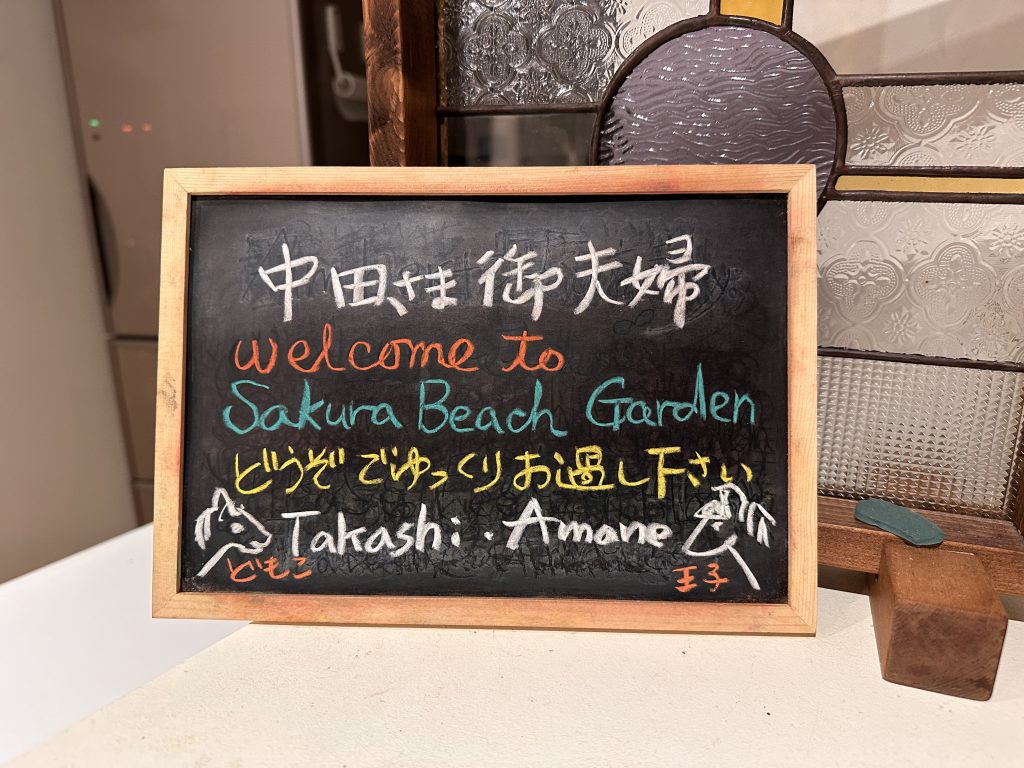 中田さま御夫婦
welcome to
Sakura Beach Garden
どうぞごゆっくりお過し下さい
Takashi・Amane
ともこ 王子